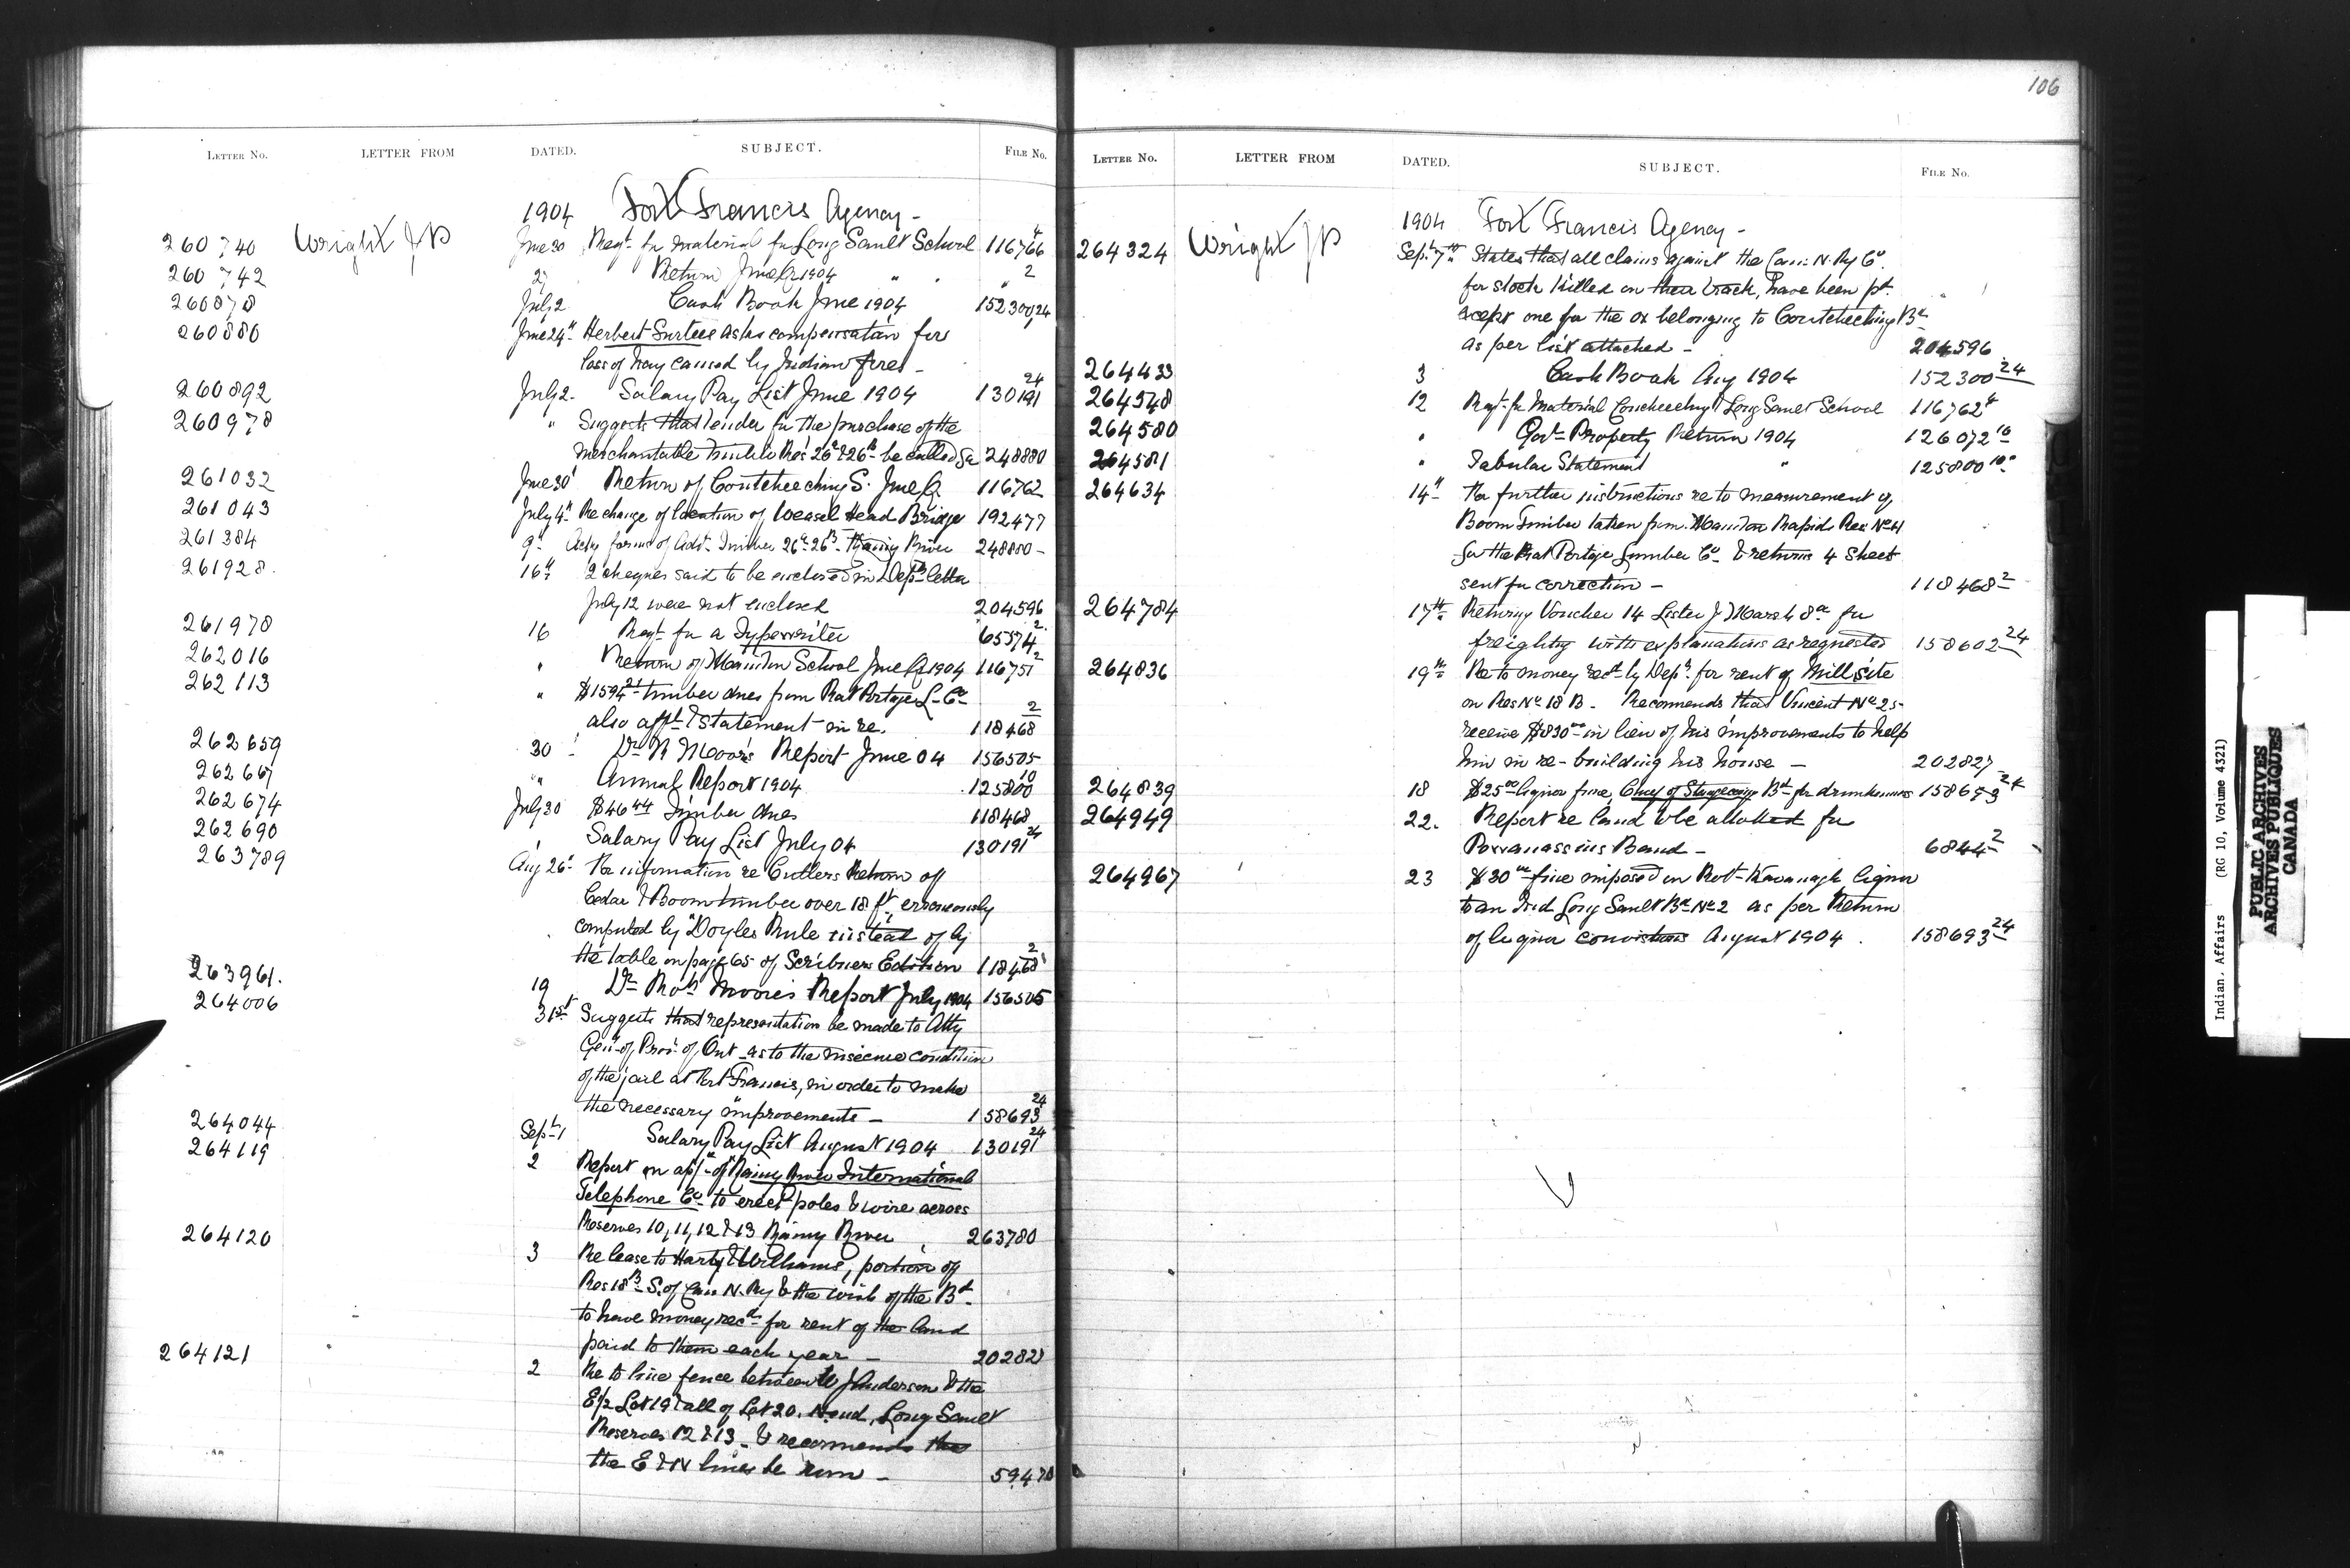 LETTER NO. LETTER FROM DATED. SUBJECT. FILE NO.
1904 Fort Francis Agency -
260740 Wright J P June 30 Reqt. for material for Long Sault School 116766 4
260742 Return June Q 1904 " " " 2
260878 July 2 Cash Book June 1904 152300,24
260880 June 24th Herbert Surtees asks compensation for
loss of hay caused by Indian fires -
260892 July 2- Salary Pay List June 1904 130191 24
260978 " Suggests that tender for the purchase of the
merchantable timber Res 26a & 26b be called for 248880
261032 June 30 Return of Coutcheeching S. June Q 116762
261043 July 4th Re change of location of Weasel Head Bridge 192477
261384 9th forms of Advt. Timber 26a 26B Rainy River 248880 -
261928. 16th 2 cheques said to be enclosed in Depts letter
July 12 were not enclosed 204596
261978 16 Reqt. for a Typewriter 65574 2
262016 " Return of Manitou School June Q 1904 116751 2
262113 " $1594 21 timber dues from Rat Portage L. Co
also afft & statement in re. 118468 2
262659 30 Dr R Moore's Report June 04 156505
262667 " Annual Report 1904 125800 10
262674 July 30 $46 44 Timber dues 118468
262690 Salary Pay List July 04 130191 24
263789 Aug 26th Re information re Cutlers Return of
Cedar & Boom timber over 18 ft, erroneously
computed by "Doyles Rule instead of by
the table on page 65 of Scribners Edition 118468 2
263961. 19 Dr Robt Moore's Report July 1904 156505
264006 31st Suggests that representation be made to Atty
Genl of Prov. of Ont as to the insecure condition
of the jail at Fort Francis, in order to make
the necessary improvements - 158693 24
264044 Sept 1 Salary Pay List August 1904 130191 24
264119 2 Report on appl of Rainy River International
Telephone Co to erect poles & wire across
Reserves 10, 11, 12 & 13 Rainy River 263780
264120 3 Re lease to Harty & Williams, portion of
Res 18B S. of Can N. Ry & the wish of the Bd
to have money recd for rent of the land
paid to them each year - 202827
264121 2 Re to line fence between W J Anderson & the
E½ Lot 19 & all of Lot 20, Long Sault
Reserves 12 & 13 - & recommends that
the E & N lines be run - 59470
106
LETTER NO. LETTER FROM DATED. SUBJECT. FILE NO.
1904 Fort Francis Agency -
264324 Wright J P Sept. 7th States that all claims against the Can. N. Ry Co.
for stock killed on their track, have been pd.
except one for the ox belonging to Coutcheeching Bd
as per list attached - 204596
264433 3 Cash Book Aug 1904 152300 24
264548 12 Reqt. for Material Coucheeching & Long Sault School 116762 4
264580 " Govt Property Return 1904 126072 10
264581 " Tabular Statement " 125800 10
264634 14th Re further instructions re to measurement of
Boom Timber taken from Manitou Rapids Res No 11
for the Rat Portage Lumber Co. & returns 4 sheets
sent for correction - 118468 2
264784 17th Returning Voucher 14 Lister J Marsh for
freighting with explanations as requested 158602 24
264836 19th Re to money recd by Dept. for rent of Mill site
on Res No 18 B. Recommends that Vincent No 25
receive $830 00 in lieu of his improvements to help
him in re-building his house - 202827
264839 18 $25 00 liquor fine, Chief of Bd for drunkenness 158693 24
264949 22. Report re land to be allotted for
Pawanassins Band - 6844 2
264967 23 $30 00 fine imposed on Robt Kavanagh liquor
to an Ind Long Sault Bd No 2 as per Return
of liquor convictions August 1904. 158693 24
Indian Affairs (RG 10, Volume 4321)
PUBLIC ARCHIVES
ARCHIVES PUBLIQUES
CANADA